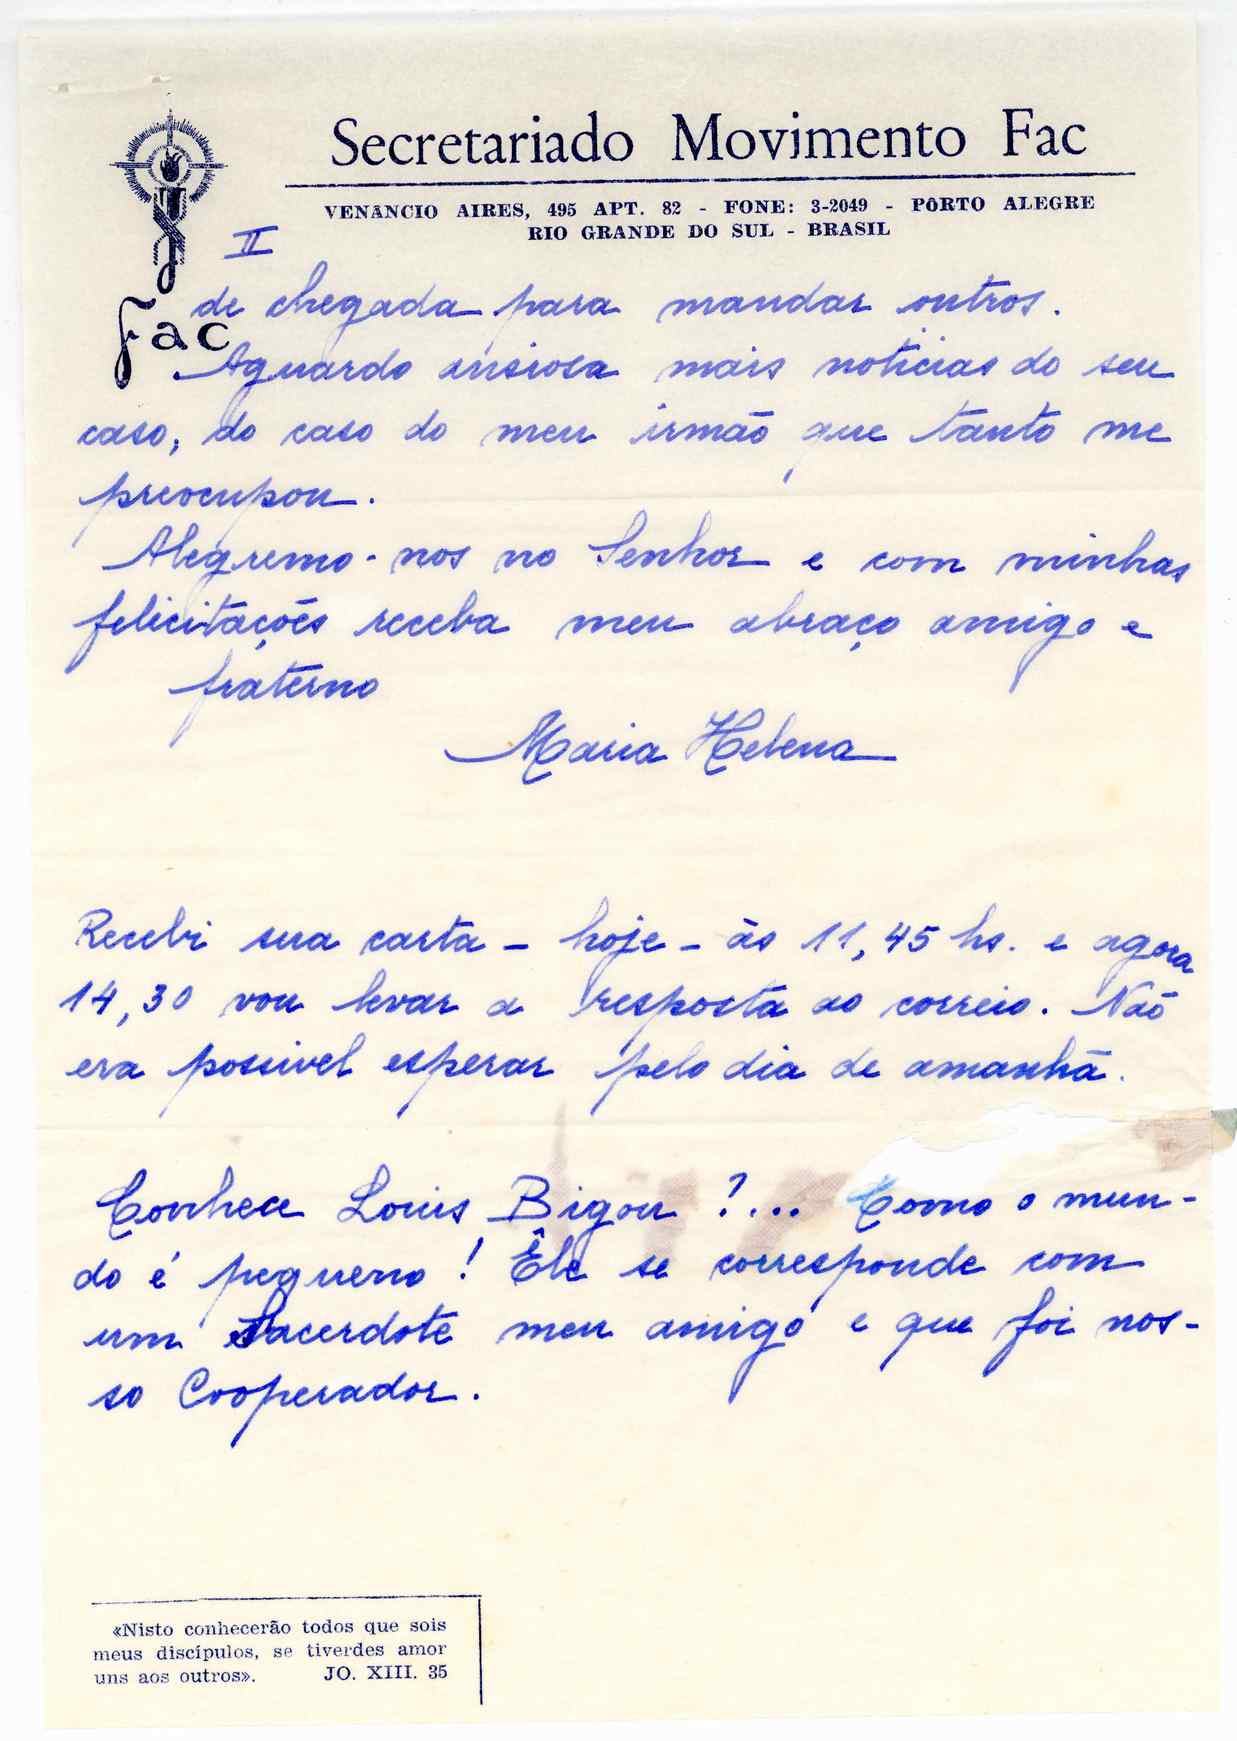 Secretariado Movimento Fac
VENÂNCIO AIRES, 495 APT. 82 - FONE: 3-2049 - PÔRTO ALEGRE
RIO GRANDE DO SUL - BRASIL
II
Fac
de chegada para mandar outros.
Aguardo ansiosa mais noticias do seu
caso, do caso do meu irmão que tanto me
preocupou.
Alegremo-nos no Senhor e com minhas
felicitações receba meu abraço amigo e
fraterno
Maria Helena
Recebi sua carta - hoje - às 11,45 hs. e agora
14,30 vou levar a resposta ao correio. Não
era possivel esperar pelo dia de amanhã.
Conhece Louis Bigou ?... Como o mun-
do é pequeno ! Êle se corresponde com
um Sacerdote meu amigo e que foi nos-
so Cooperador.
«Nisto conhecerão todos que sois
meus discípulos, se tiverdes amor
uns aos outros». JO. XIII. 35